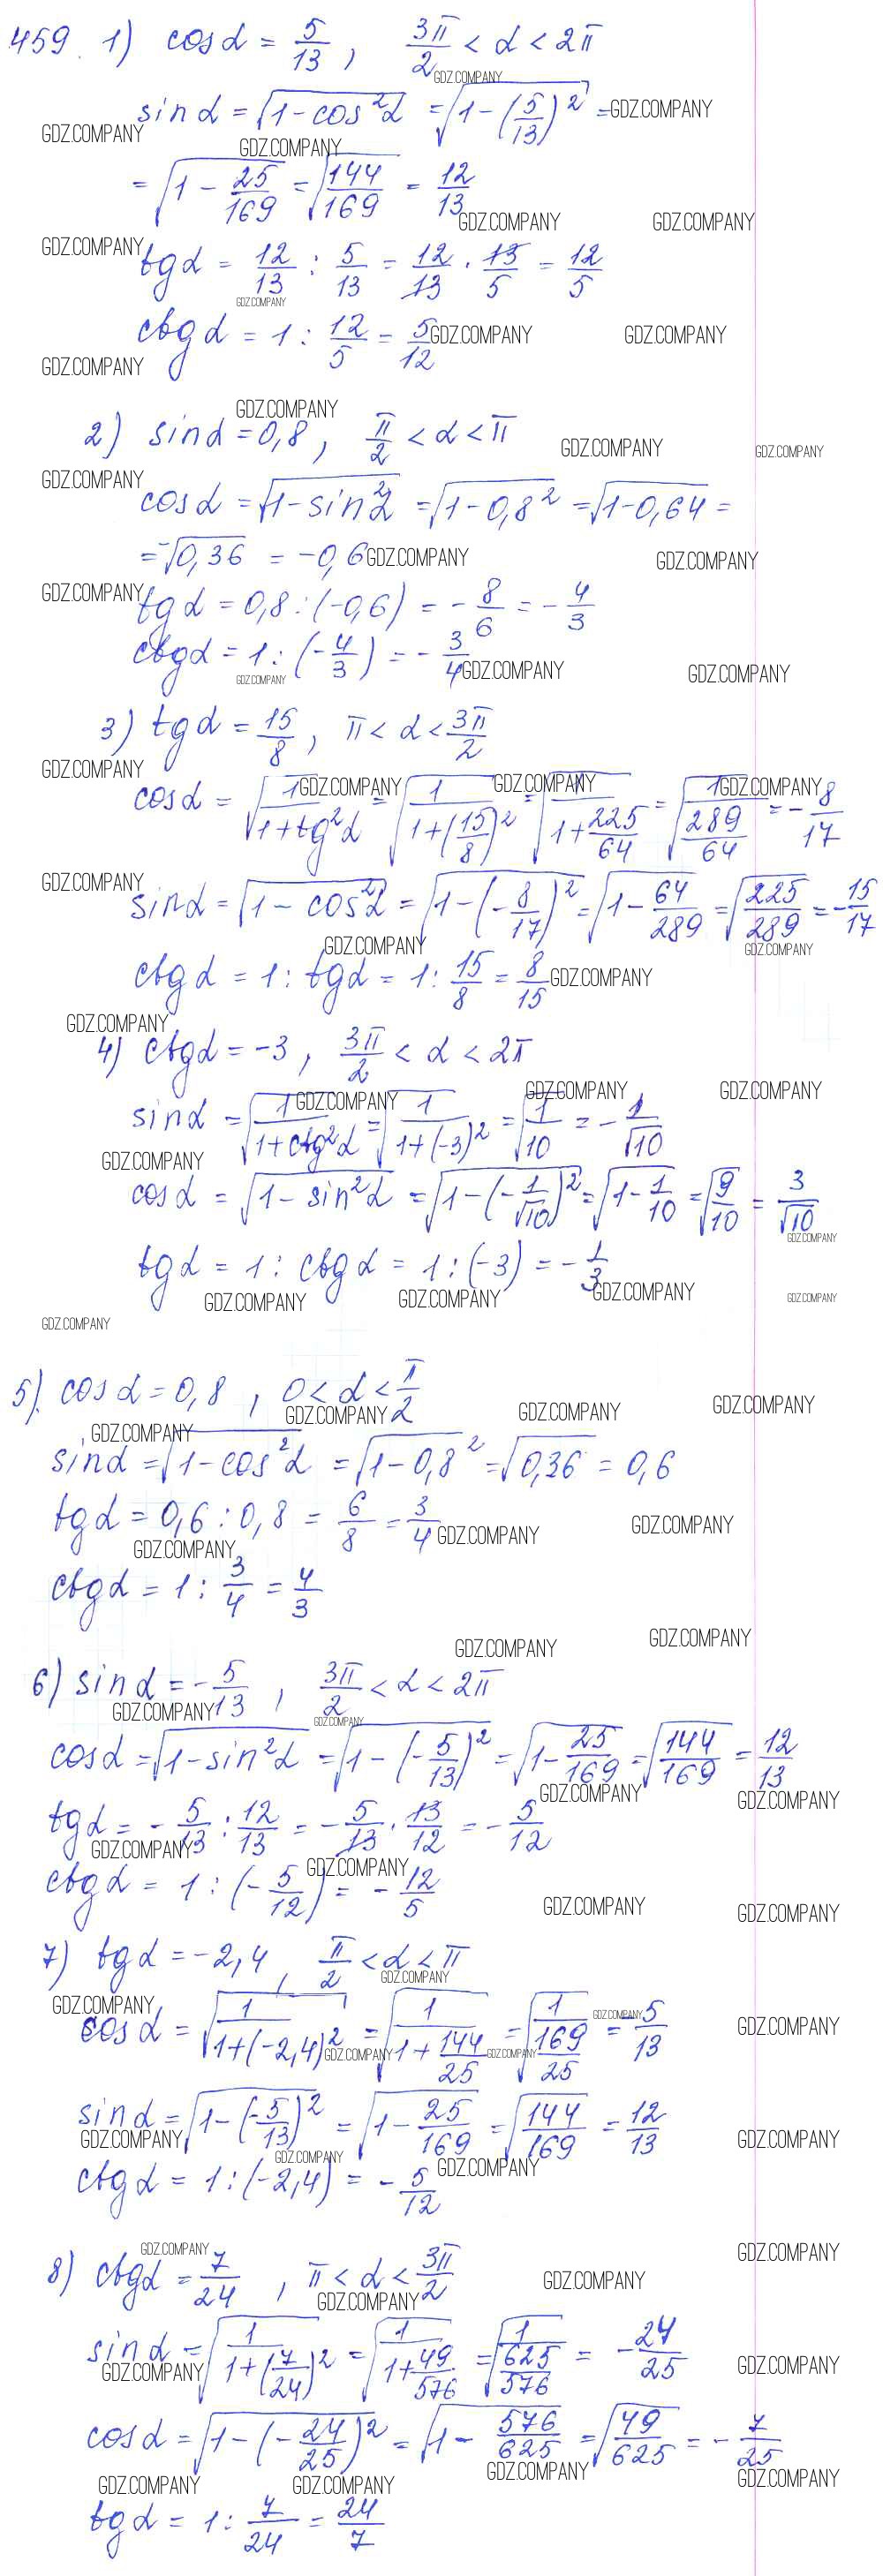 459. 1) cos α = 5/13, 3π/2 < α < 2π
GDZ.COMPANY
sin α = √(1 − cos²α) = √(1 − (5/13)²) = GDZ.COMPANY
GDZ.COMPANY GDZ.COMPANY
= √(1 − 25/169) = √(144/169) = 12/13
GDZ.COMPANY GDZ.COMPANY
GDZ.COMPANY tg α = 12/13 : 5/13 = 12/13 · 13/5 = 12/5
GDZ.COMPANY
ctg α = 1 : 12/5 = 5/12 GDZ.COMPANY GDZ.COMPANY
GDZ.COMPANY
GDZ.COMPANY
2) sin α = 0,8, π/2 < α < π
GDZ.COMPANY GDZ.COMPANY
GDZ.COMPANY
cos α = √(1 − sin²α) = √(1 − 0,8²) = √(1 − 0,64) =
= −√0,36 = −0,6 GDZ.COMPANY GDZ.COMPANY
GDZ.COMPANY tg α = 0,8 : (−0,6) = −8/6 = −4/3
ctg α = 1 : (−4/3) = −3/4 GDZ.COMPANY GDZ.COMPANY
GDZ.COMPANY
3) tg α = 15/8, π < α < 3π/2
GDZ.COMPANY
cos α = √(1/(1 + tg²α)) = √(1/(1 + (15/8)²)) = √(1/(1 + 225/64)) = √(1/(289/64)) = −8/17
GDZ.COMPANY GDZ.COMPANY GDZ.COMPANY
GDZ.COMPANY
sin α = √(1 − cos²α) = √(1 − (−8/17)²) = √(1 − 64/289) = √(225/289) = −15/17
GDZ.COMPANY GDZ.COMPANY
ctg α = 1 : tg α = 1 : 15/8 = 8/15 GDZ.COMPANY
GDZ.COMPANY
4) ctg α = −3, 3π/2 < α < 2π
GDZ.COMPANY GDZ.COMPANY GDZ.COMPANY
sin α = √(1/(1 + ctg²α)) = √(1/(1 + (−3)²)) = √(1/10) = −1/√10
GDZ.COMPANY
cos α = √(1 − sin²α) = √(1 − (−1/√10)²) = √(1 − 1/10) = √(9/10) = 3/√10
GDZ.COMPANY
tg α = 1 : ctg α = 1 : (−3) = −1/3
GDZ.COMPANY GDZ.COMPANY GDZ.COMPANY GDZ.COMPANY
GDZ.COMPANY
5). cos α = 0,8, 0 < α < π/2
GDZ.COMPANY GDZ.COMPANY GDZ.COMPANY
GDZ.COMPANY
sin α = √(1 − cos²α) = √(1 − 0,8²) = √0,36 = 0,6
tg α = 0,6 : 0,8 = 6/8 = 3/4 GDZ.COMPANY GDZ.COMPANY
GDZ.COMPANY
ctg α = 1 : 3/4 = 4/3
GDZ.COMPANY GDZ.COMPANY
6) sin α = −5/13, 3π/2 < α < 2π
GDZ.COMPANY GDZ.COMPANY
cos α = √(1 − sin²α) = √(1 − (−5/13)²) = √(1 − 25/169) = √(144/169) = 12/13
GDZ.COMPANY GDZ.COMPANY
tg α = −5/13 : 12/13 = −5/13 · 13/12 = −5/12
GDZ.COMPANY GDZ.COMPANY
ctg α = 1 : (−5/12) = −12/5
GDZ.COMPANY GDZ.COMPANY
7) tg α = −2,4, π/2 < α < π
GDZ.COMPANY
GDZ.COMPANY GDZ.COMPANY GDZ.COMPANY
cos α = √(1/(1 + (−2,4)²)) = √(1/(1 + 144/25)) = √(1/(169/25)) = −5/13
GDZ.COMPANY GDZ.COMPANY
sin α = √(1 − (−5/13)²) = √(1 − 25/169) = √(144/169) = 12/13
GDZ.COMPANY GDZ.COMPANY
GDZ.COMPANY GDZ.COMPANY
ctg α = 1 : (−2,4) = −5/12
GDZ.COMPANY GDZ.COMPANY
8) ctg α = 7/24, π < α < 3π/2
GDZ.COMPANY GDZ.COMPANY
sin α = √(1/(1 + (7/24)²)) = √(1/(1 + 49/576)) = √(1/(625/576)) = −24/25
GDZ.COMPANY GDZ.COMPANY
cos α = √(1 − (−24/25)²) = √(1 − 576/625) = √(49/625) = −7/25
GDZ.COMPANY GDZ.COMPANY GDZ.COMPANY GDZ.COMPANY
tg α = 1 : 7/24 = 24/7